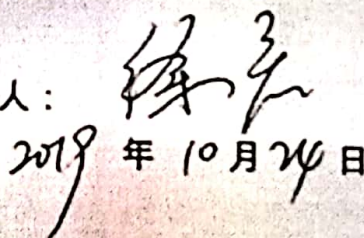 人：徐
2019年10月24日